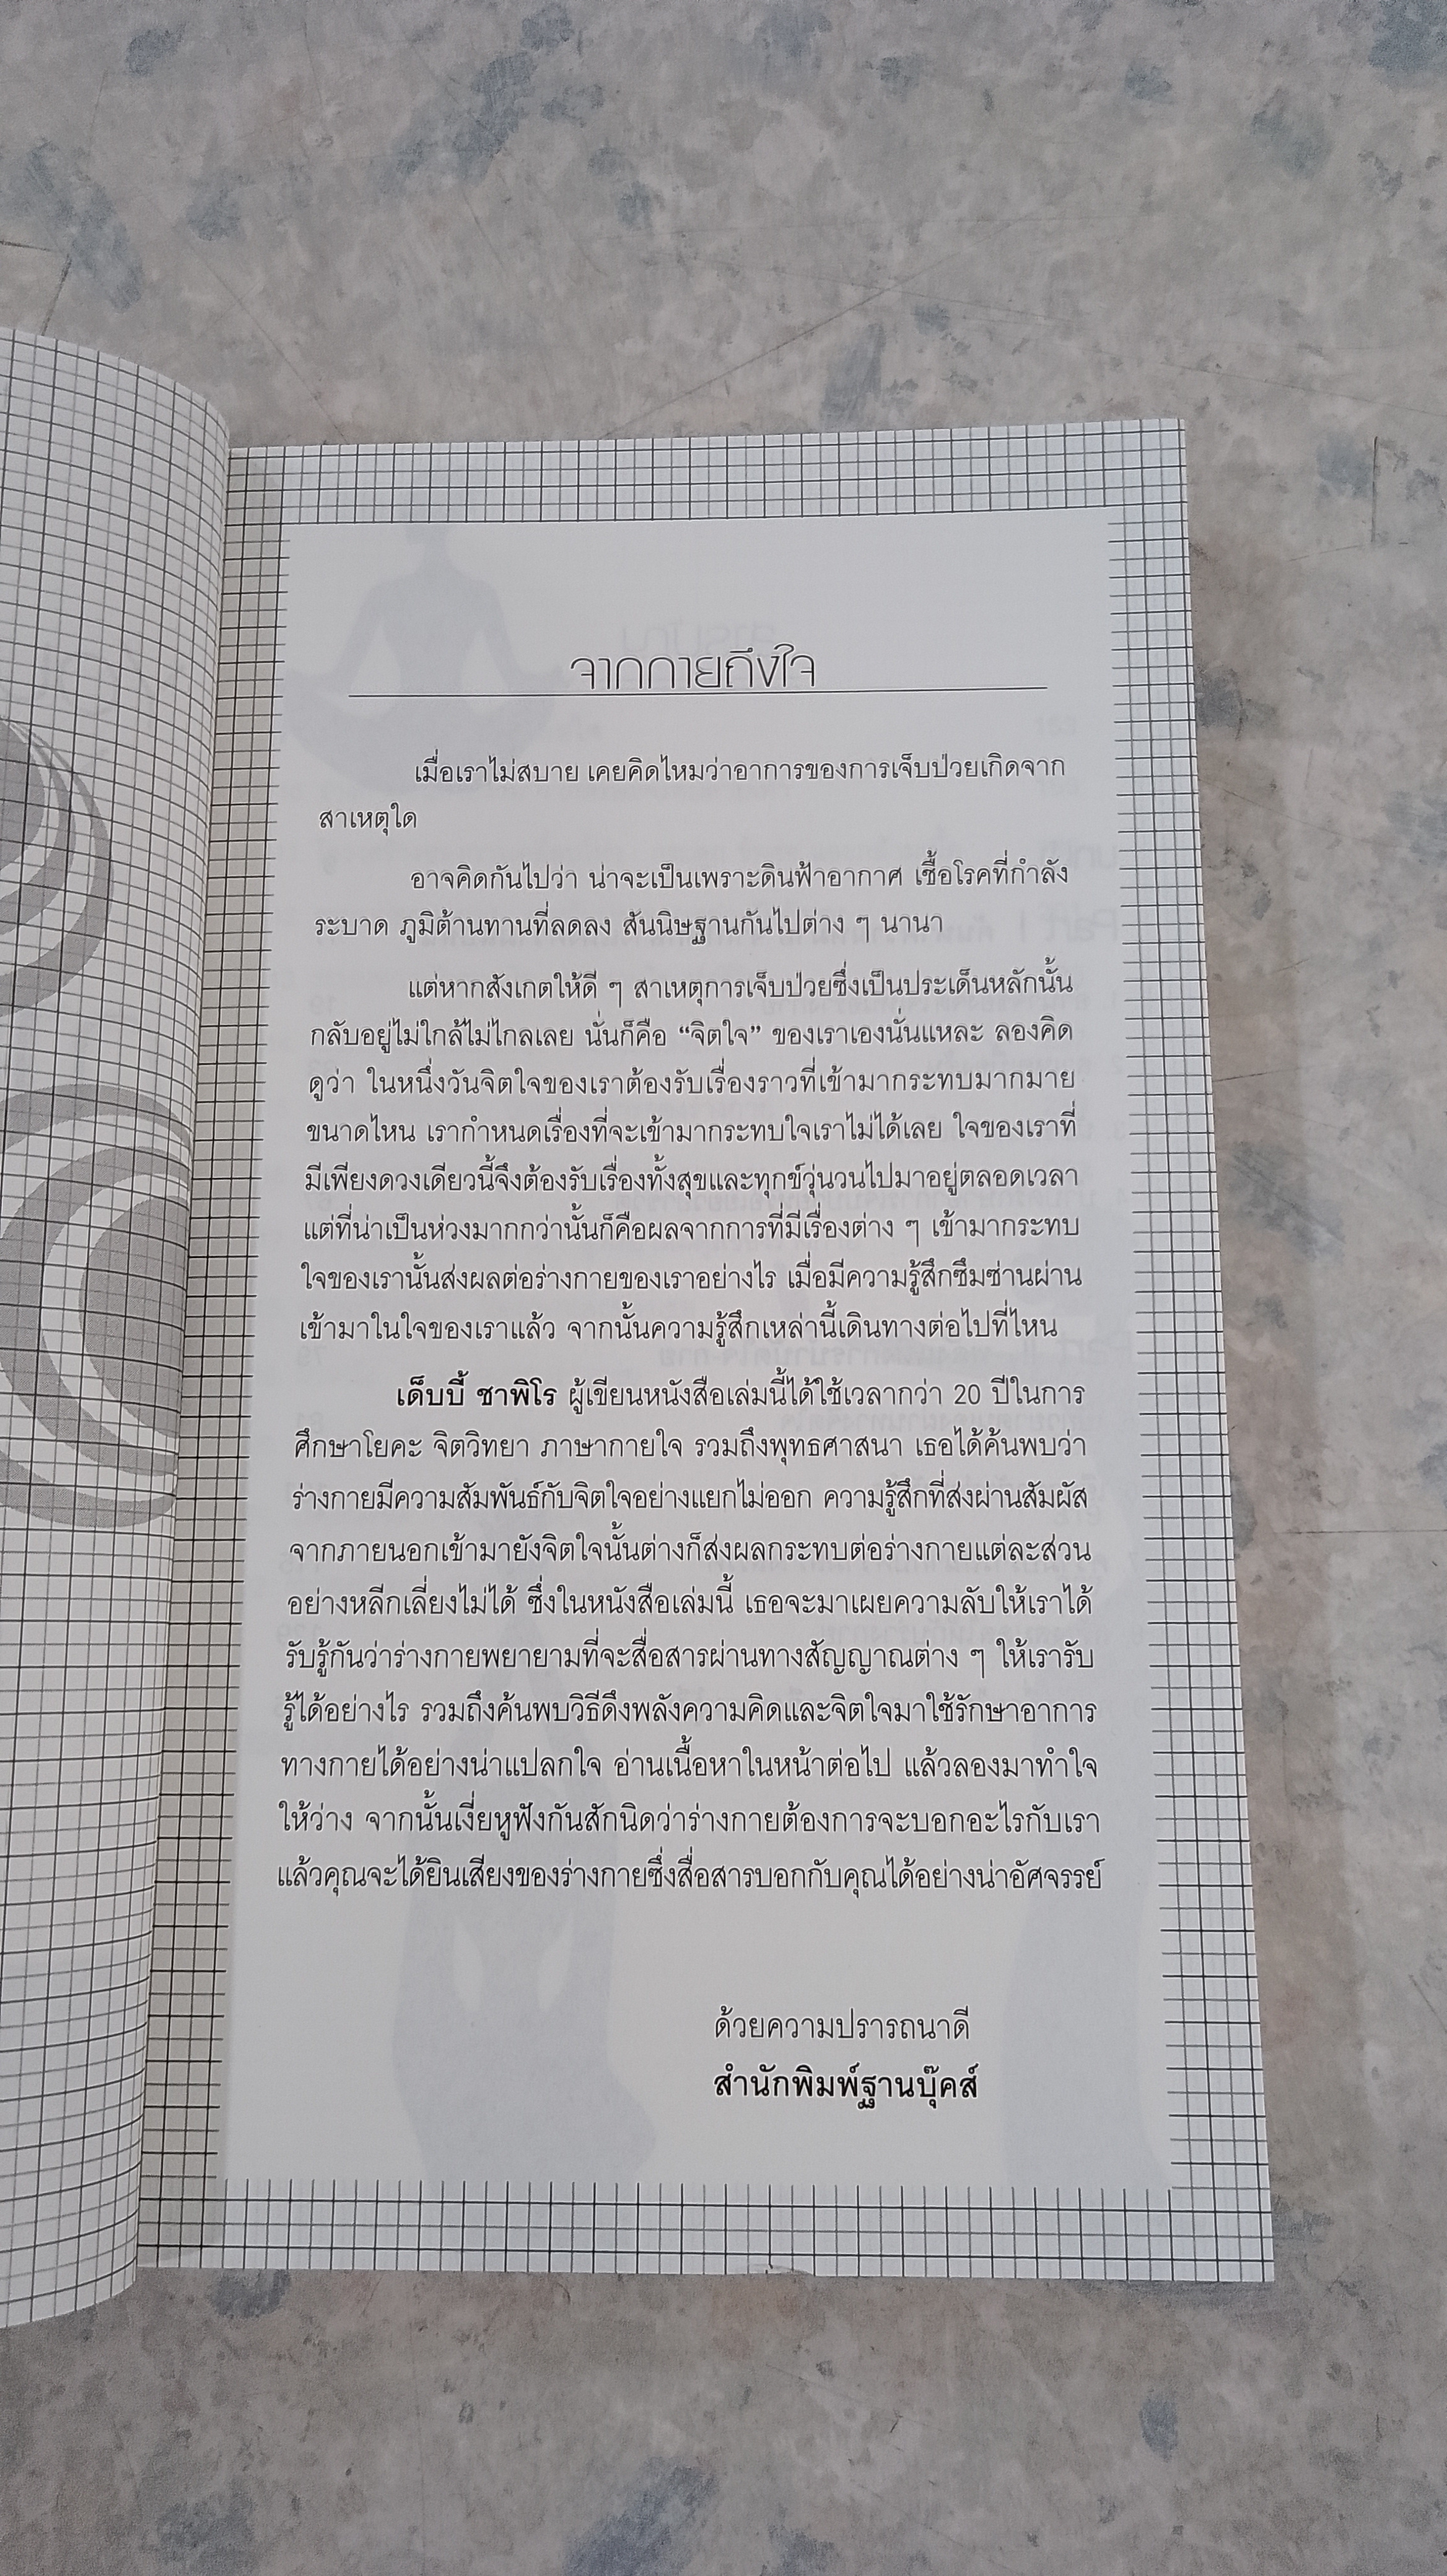 จากกายถึงใจ
เมื่อเราไม่สบาย เคยคิดไหมว่าอาการของการเจ็บป่วยเกิดจาก
สาเหตุใด
อาจคิดกันไปว่า น่าจะเป็นเพราะดินฟ้าอากาศ เชื้อโรคที่กำลัง
ระบาด ภูมิต้านทานที่ลดลง สันนิษฐานกันไปต่าง ๆ นานา
แต่หากสังเกตให้ดี ๆ สาเหตุการเจ็บป่วยซึ่งเป็นประเด็นหลักนั้น
กลับอยู่ไม่ใกล้ไม่ไกลเลย นั่นก็คือ “จิตใจ” ของเราเองนั่นแหละ ลองคิด
ดูว่า ในหนึ่งวันจิตใจของเราต้องรับเรื่องราวที่เข้ามากระทบมากมาย
ขนาดไหน เรากำหนดเรื่องที่จะเข้ามากระทบใจเราไม่ได้เลย ใจของเราที่
มีเพียงดวงเดียวนี้จึงต้องรับเรื่องทั้งสุขและทุกข์วุ่นวนไปมาอยู่ตลอดเวลา
แต่ที่น่าเป็นห่วงมากกว่านั้นก็คือผลจากการที่มีเรื่องต่าง ๆ เข้ามากระทบ
ใจของเรานั้นส่งผลต่อร่างกายของเราอย่างไร เมื่อมีความรู้สึกซึมซ่านผ่าน
เข้ามาในใจของเราแล้ว จากนั้นความรู้สึกเหล่านี้เดินทางต่อไปที่ไหน
เด็บบี้ ชาพิโร ผู้เขียนหนังสือเล่มนี้ได้ใช้เวลากว่า 20 ปีในการ
ศึกษาโยคะ จิตวิทยา ภาษากายใจ รวมถึงพุทธศาสนา เธอได้ค้นพบว่า
ร่างกายมีความสัมพันธ์กับจิตใจอย่างแยกไม่ออก ความรู้สึกที่ส่งผ่านสัมผัส
จากภายนอกเข้ามายังจิตใจนั้นต่างก็ส่งผลกระทบต่อร่างกายแต่ละส่วน
อย่างหลีกเลี่ยงไม่ได้ ซึ่งในหนังสือเล่มนี้ เธอจะมาเผยความลับให้เราได้
รับรู้กันว่าร่างกายพยายามที่จะสื่อสารผ่านทางสัญญาณต่าง ๆ ให้เรารับ
รู้ได้อย่างไร รวมถึงค้นพบวิธีดึงพลังความคิดและจิตใจมาใช้รักษาอาการ
ทางกายได้อย่างน่าแปลกใจ อ่านเนื้อหาในหน้าต่อไป แล้วลองมาทำใจ
ให้ว่าง จากนั้นเงี่ยหูฟังกันสักนิดว่าร่างกายต้องการจะบอกอะไรกับเรา
แล้วคุณจะได้ยินเสียงของร่างกายซึ่งสื่อสารบอกกับคุณได้อย่างน่าอัศจรรย์
ด้วยความปรารถนาดี
สำนักพิมพ์ฐานบุ๊คส์